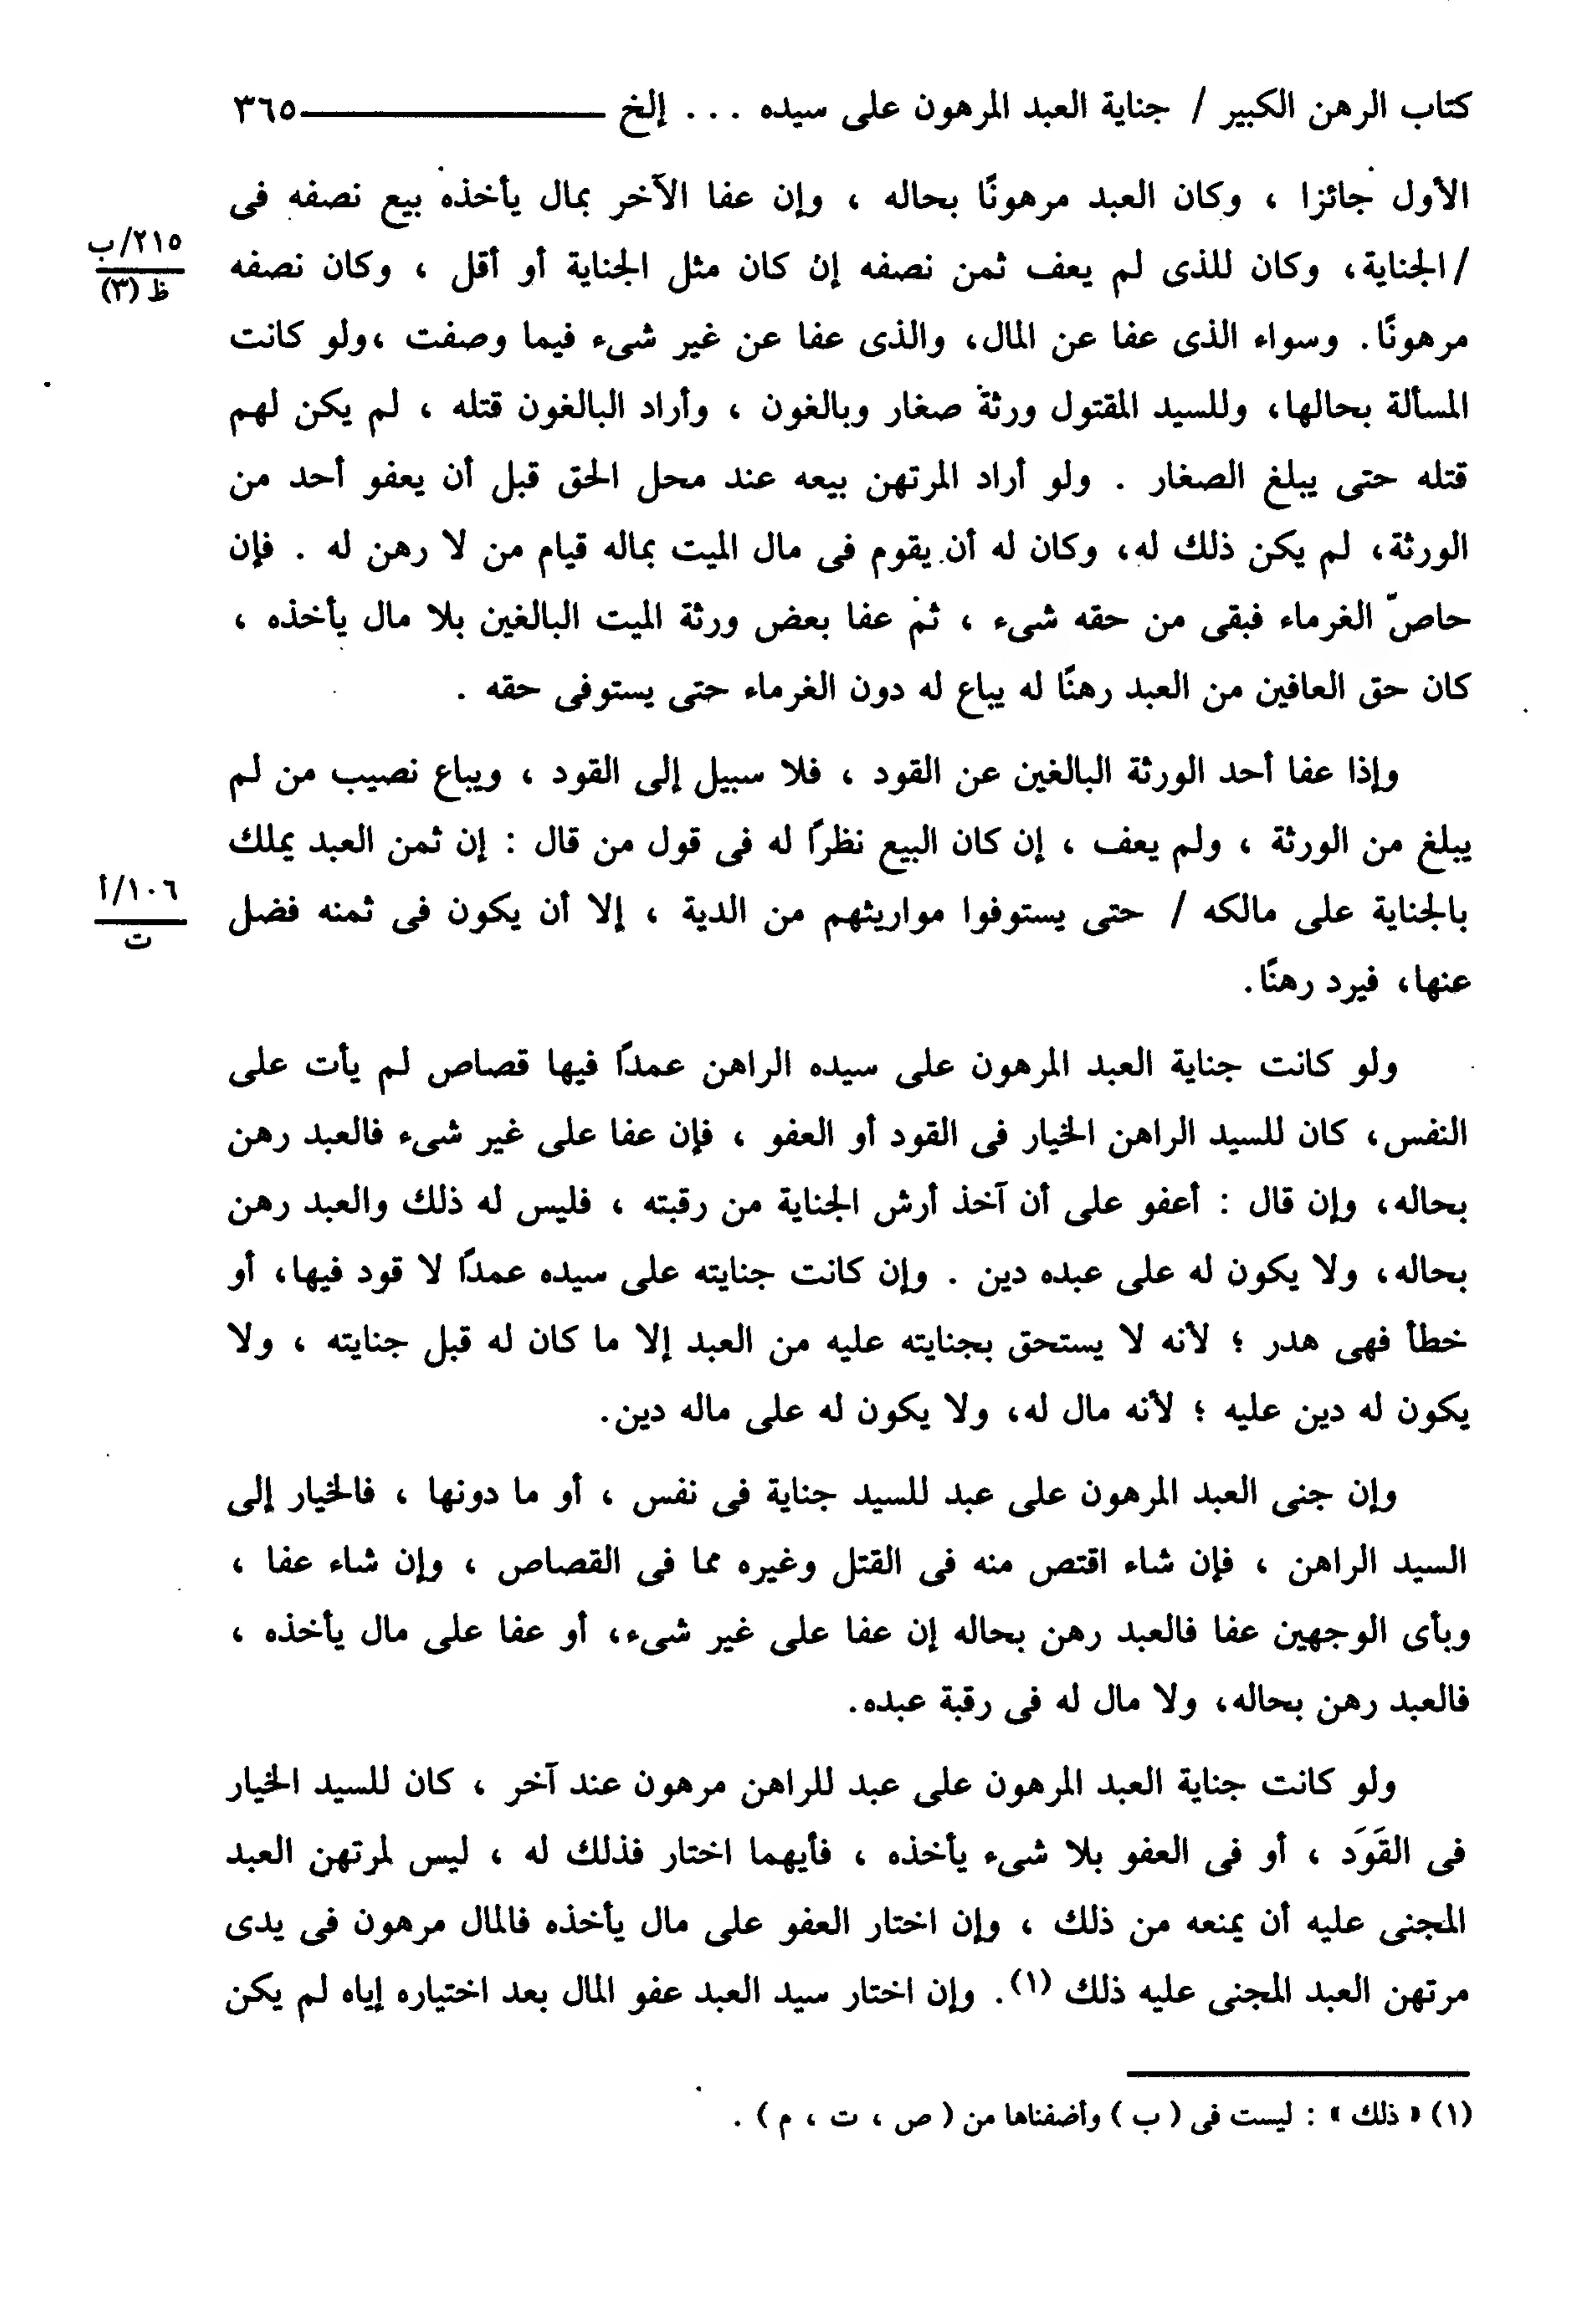 كتاب الرهن الكبير / جناية العبد المرهون على سيده ... إلخ ٣٦٥
الأول جائزا ، وكان العبد مرهونًا بحاله ، وإن عفا الآخر بمال يأخذه بيع نصفه فى
/الجناية، وكان للذى لم يعف ثمن نصفه إن كان مثل الجناية أو أقل ، وكان نصفه
٢١٥/ب
ظ (٣)
مرهونًا. وسواء الذى عفا عن المال، والذى عفا عن غير شىء فيما وصفت ،ولو كانت
المسألة بحالها، وللسيد المقتول ورثة صغار وبالغون ، وأراد البالغون قتله ، لم يكن لهم
قتله حتى يبلغ الصغار . ولو أراد المرتهن بيعه عند محل الحق قبل أن يعفو أحد من
الورثة، لم يكن ذلك له، وكان له أن يقوم فى مال الميت بماله قيام من لا رهن له . فإن
حاصّ الغرماء فبقى من حقه شىء ، ثم عفا بعض ورثة الميت البالغين بلا مال يأخذه ،
كان حق العافين من العبد رهنًا له يباع له دون الغرماء حتى يستوفى حقه .
وإذا عفا أحد الورثة البالغين عن القود ، فلا سبيل إلى القود ، ويباع نصيب من لم
يبلغ من الورثة ، ولم يعف ، إن كان البيع نظرًا له فى قول من قال : إن ثمن العبد يملك
بالجناية على مالكه / حتى يستوفوا مواريثهم من الدية ، إلا أن يكون فى ثمنه فضل
١٠٦/أ
ت
عنها، فيرد رهنًا.
ولو كانت جناية العبد المرهون على سيده الراهن عمدًا فيها قصاص لم يأت على
النفس، كان للسيد الراهن الخيار فى القود أو العفو ، فإن عفا على غير شىء فالعبد رهن
بحاله، وإن قال : أعفو على أن آخذ أرش الجناية من رقبته ، فليس له ذلك والعبد رهن
بحاله، ولا يكون له على عبده دين . وإن كانت جنايته على سيده عمدًا لا قود فيها، أو
خطأ فهى هدر ؛ لأنه لا يستحق بجنايته عليه من العبد إلا ما كان له قبل جنايته ، ولا
يكون له دين عليه ؛ لأنه مال له، ولا يكون له على ماله دين.
وإن جنى العبد المرهون على عبد للسيد جناية فى نفس ، أو ما دونها ، فالخيار إلى
السيد الراهن ، فإن شاء اقتص منه فى القتل وغيره مما فى القصاص ، وإن شاء عفا ،
وبأى الوجهين عفا فالعبد رهن بحاله إن عفا على غير شىء، أو عفا على مال يأخذه ،
فالعبد رهن بحاله، ولا مال له فى رقبة عبده.
ولو كانت جناية العبد المرهون على عبد للراهن مرهون عند آخر ، كان للسيد الخيار
فى القَوَد ، أو فى العفو بلا شىء يأخذه ، فأيهما اختار فذلك له ، ليس لمرتهن العبد
المجنى عليه أن يمنعه من ذلك ، وإن اختار العفو على مال يأخذه فالمال مرهون فى يدى
مرتهن العبد المجنى عليه ذلك (١). وإن اختار سيد العبد عفو المال بعد اختياره إياه لم يكن
(١) « ذلك » : ليست فى ( ب ) وأضفناها من ( ص ، ت ، م ) .